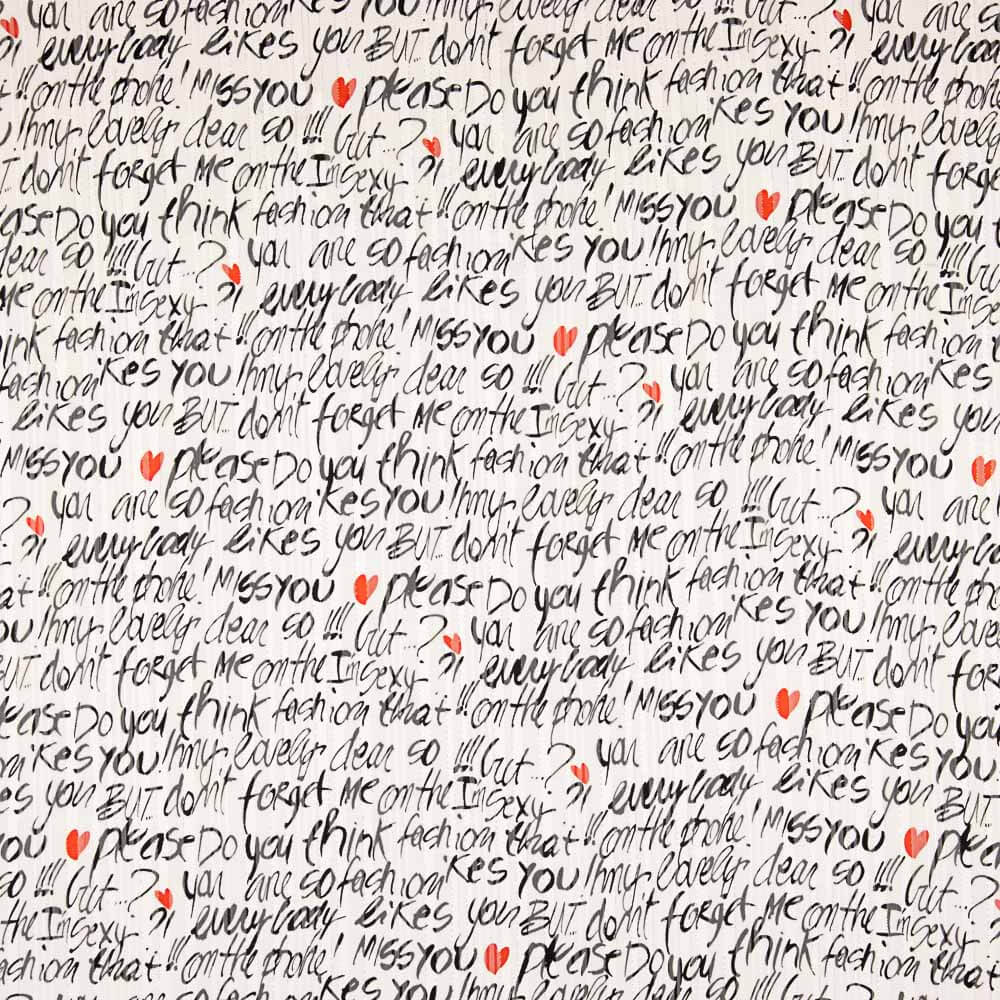 you are so fashion Kes YOU !hmy lovely dear so !!!! Gut...? you are so
?! everybody likes you BUT don't forget Me on the Imsexy ?! everybody
!! on the phone! Miss YOU please Do you think fashion that !! on the phone!
!hmy lovely dear so !!!! Gut...? you are so fashion Kes YOU !hmy lovely
don't forget Me on the Imsexy ?! everybody likes you BUT don't forget
ease Do you think fashion that !! on the phone! Miss YOU please Do you t
dear so !!!! Gut...? you are so fashion Kes YOU !hmy lovely dear so !!!! Gut
Me on the Imsexy ?! everybody likes you BUT don't forget Me on the Imse
ink fashion that !! on the phone! Miss YOU please Do you think fashion
fashion Kes YOU !hmy lovely dear so !!!! Gut...? you are so fashion Kes
likes you BUT don't forget Me on the Imsexy ?! everybody likes you
Miss YOU please Do you think fashion that !! on the phone! Miss YOU
? you are so fashion Kes YOU !hmy lovely dear so !!!! Gut...? you are
?! everybody likes you BUT don't forget Me on the Imsexy ?! everybo
at !! on the phone! Miss YOU please Do you think fashion that !! on the pho
OU !hmy lovely dear so !!!! Gut...? you are so fashion Kes YOU !hmy love
BUT don't forget Me on the Imsexy ?! everybody likes you BUT don't for
lease Do you think fashion that !! on the phone! Miss YOU please Do you
n Kes YOU !hmy lovely dear so !!!! Gut...? you are so fashion Kes YOU
es you BUT don't forget Me on the Imsexy ?! everybody likes you BUT
YOU please Do you think fashion that !! on the phone! Miss YOU plea
so !!!! Gut...? you are so fashion Kes YOU !hmy lovely dear so !!!! Gut...?
the Imsexy ?! everybody likes you BUT don't forget Me on the Imsexy
ashion that !! on the phone! Miss YOU please Do you think fashion that